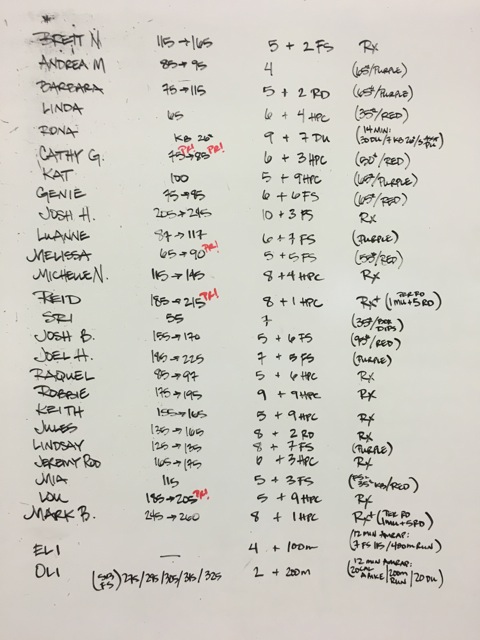 *
BRETT N 115→165 5 + 2 FS Rx
ANDREA M 85→95 4 (65#/PURPLE)
BARBARA 75→115 5 + 2 RD (65#/PURPLE)
LINDA 65 6 + 4 HPC (35#/RED)
RONA KB 26# 9 + 7 DU (14 MIN: 30 DU/7 KB 26#/3
CATHY G. 75 PR!→85 PR! 6 + 3 HPC (50#/RED)
KAT 100 5 + 9 HPC (65#/PURPLE)
GENIE 75→95 6 + 6 FS (65#/RED)
JOSH H. 205→245 10 + 3 FS Rx
LUANNE 87→117 6 + 7 FS (PURPLE)
MELISSA 65→90 PR! 5 + 5 FS (55#/RED)
MICHELLE N. 115→145 8 + 4 HPC Rx
REID 185→215 PR! 8 + 1 HPC Rx+ (TER RD 1 MU + 5 RD)
SRI 55 7 (35#/BOX DIPS)
JOSH B. 155→170 5 + 6 FS (95#/RED)
JOEL H. 195→225 7 + 5 FS (PURPLE)
RAQUEL 85→97 5 + 6 HPC Rx
ROBBIE 175→195 9 + 9 HPC Rx
KEITH 155→165 5 + 9 HPC Rx
JULES 135→165 8 + 2 RD Rx
LINDSAY 125→135 8 + 7 FS (PURPLE)
JEREMY ROO 165→175 6 + 3 HPC Rx
MIA 115 5 + 3 FS 35# KB/RED)
LOU 185→205 PR! 5 + 9 HPC Rx
MARK B. 245→260 8 + 1 HPC Rx+ (TER RD 1 MU + 5 RD)
ELI — 4 + 100m (12 MIN AMRAP: 7 FS 115/400m RUN)
OLI FS) 275/295/305/315/325 2 + 200m (12 MIN AMRAP: 20 CAL A. BIKE/200m RUN/20 DU)